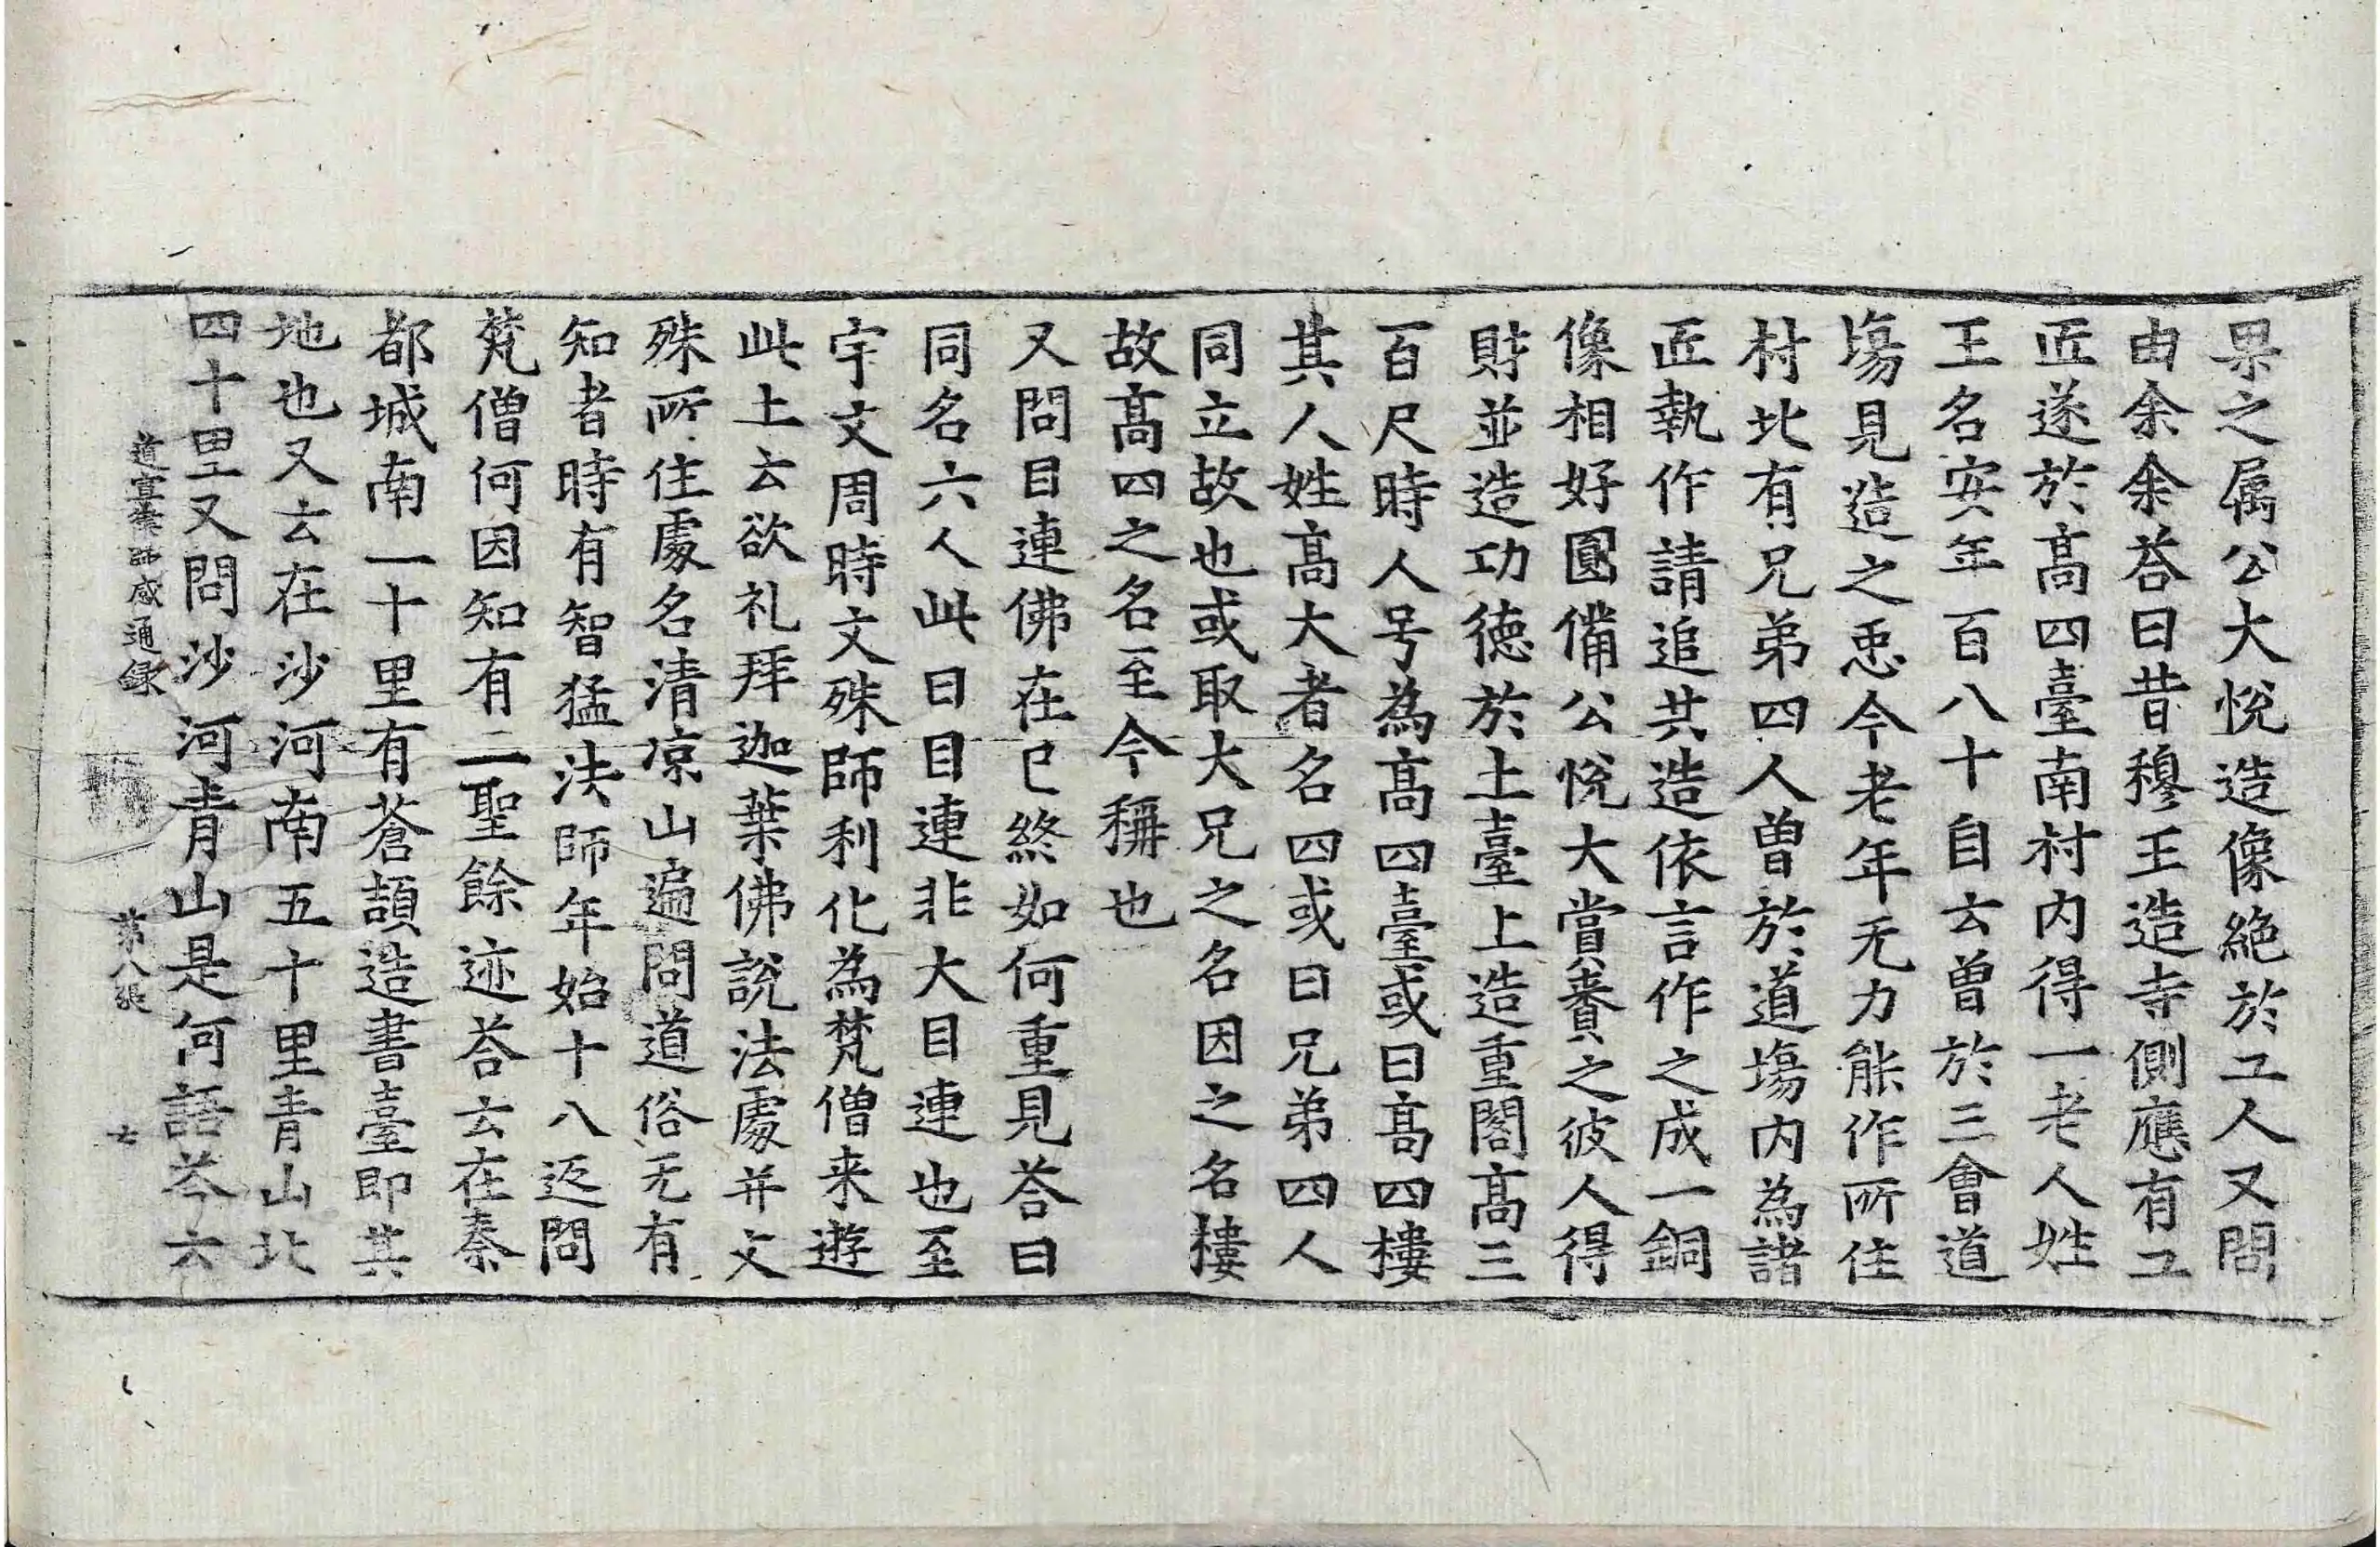 果之属公大悅造像絶於工人又問
由余余荅曰昔穆王造寺側應有工
匠遂於髙四臺南村内得一老人姓
王名安年百八十自云曾於三會道
塲見造之䨇今老年无力能作所住
村北有兄弟四人曾於道塲内為諸
匠執作請追共造依言作之成一銅
像相好圓備公悅大賞賚之彼人得
財並造功徳於土臺上造重閣髙三
百尺時人号為髙四臺或曰髙四樓
其人姓髙大者名四或曰兄弟四人
同立故也或取大兄之名因之名樓
故髙四之名至今稱也
又問目連佛在已終如何重見荅曰
同名六人此曰目連非大目連也至
宇文周時文殊師利化為梵僧来遊
此土云欲礼拜迦葉佛說法處并文
殊所住處名清凉山遍問道俗无有
知者時有智猛法師年始十八返問
梵僧何因知有二聖餘迹荅云在秦
都城南一十里有蒼頡造書臺即其
地也又云在沙河南五十里青山北
四十里又問沙河青山是何語荅六
道宣律師感通録 第八張 七